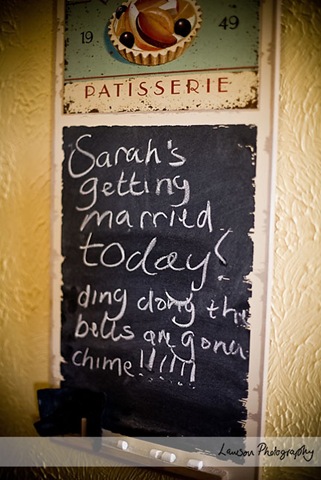 19 49
PATISSERIE
Sarah's
getting
married
today!
ding dong the
bells are gonna
chime!!!!!!!
Lawson Photography